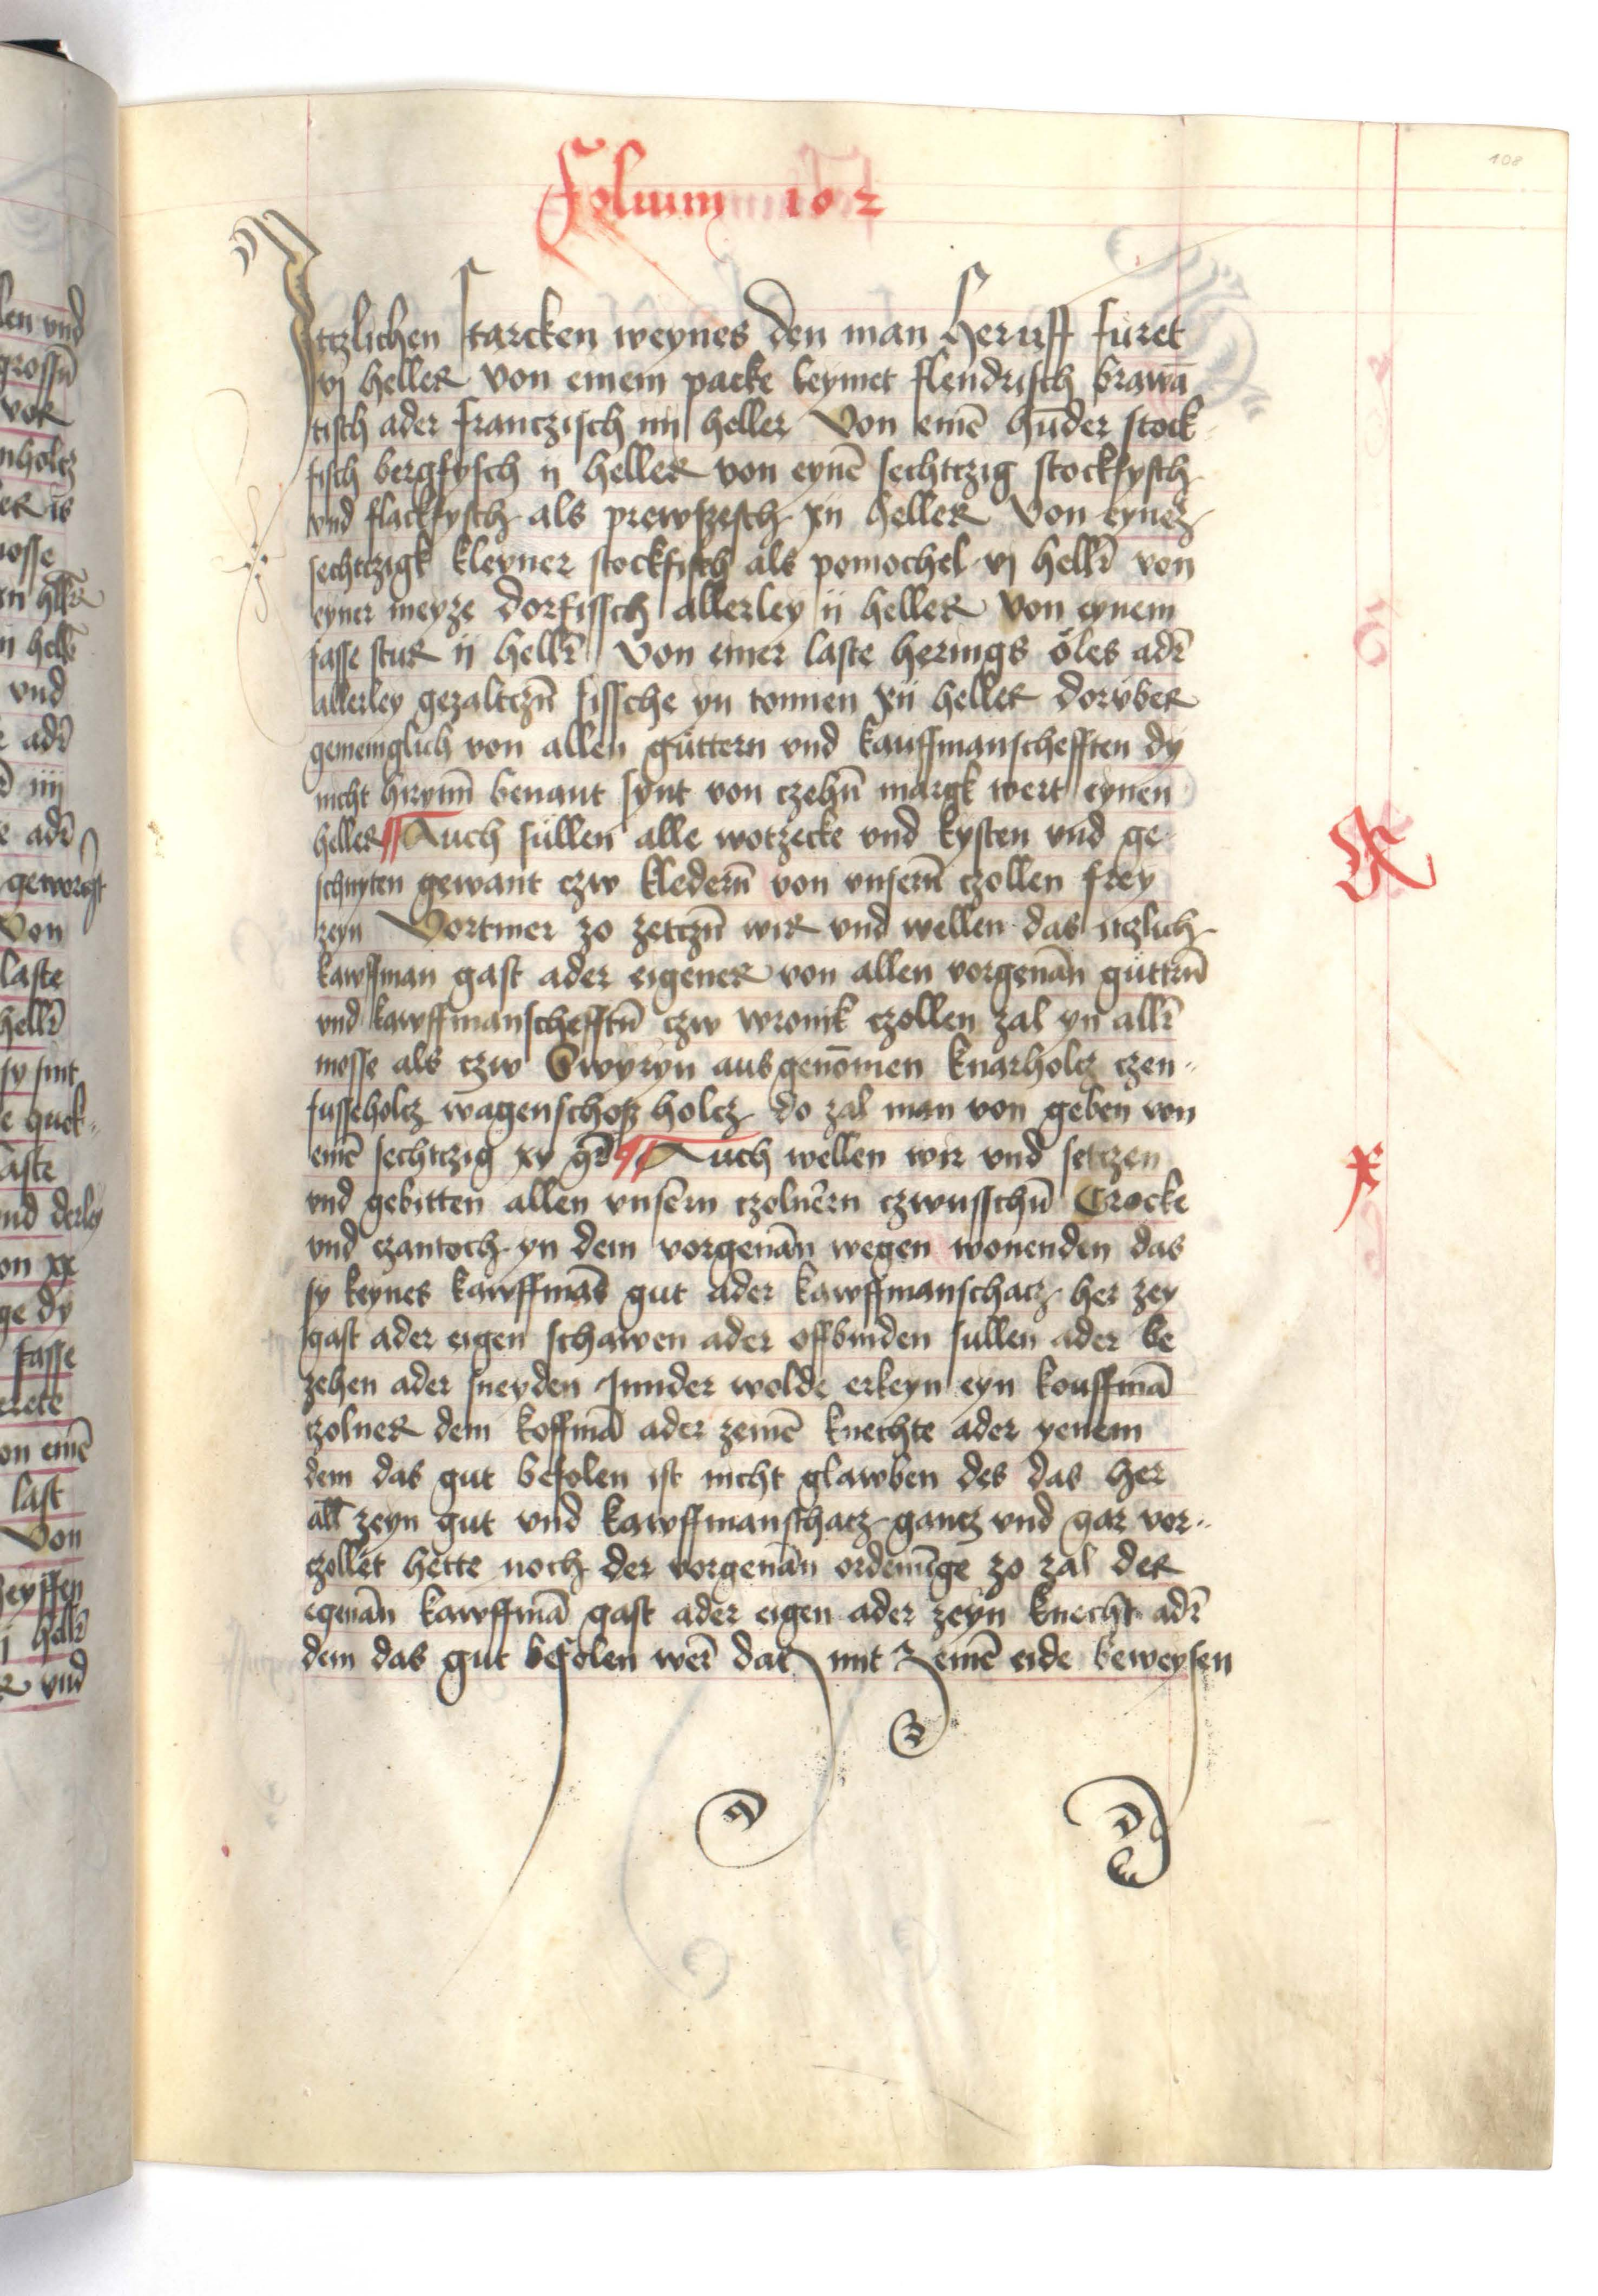 108
Folium 102
Itzlichen starcken weynes den man heruff furet
vj heller von einem packe leymet flendrisch brawā
tisch ader franczisch iiij heller Von einē hūder stock
fisch bergfysch ij heller von eynē sechtczig stockfysch
vnd flackfysch als prewszesch xij heller Von eynez
sechtczigk kleyner stockfisch als pomochel vj hellr̄ von
eyner meyze dorfissch allerley ij heller Von eynem
fasse stur ij hellr̄ Von einer laste herings öles adr̄
allerley gezaltczn̄ fissche yn tonnen xij heller dorvber
gemeinglich von allen güttern vnd kauffmanschefften dy
nicht hirynn̄ benant synt von czehn̄ margk wert eynen
heller Auch süllen alle wotzecke vnd kysten vnd ge
schnyten gewant czw kledern̄ von vnsern̄ czollen frey
zeyn Vortmer zo zetczn̄ wir vnd wellen das itzlich
kawffman gast ader eigener von allen vorgenān güttrn̄
vnd kawffmanschefftn̄ czw wronik czollen zal yn allr̄
mosse als czw Swyryn ausgenōmen knarholcz czen
fusseholcz wagenschosz holcz do zal man von geben von
einē sechtczig xv gr̄ Auch wellen wir vnd setczen
vnd gebitten allen vnsern czolnern czwusschn̄ Crocke
vnd czantoch yn dem vorgenān wegen wonenden das
sy keynes kawffmās gut ader kawffmanschacz her zey
gast ader eigen schawen ader offbinden sullen ader be
zehen ader sneyden Sunder wolde erkeyn eyn kouffmā
czolner dem koffmā ader zeinē knechte ader yenem
dem das gut befolen ist nicht glawben des das her
all zeyn gut vnd kawffmanschacz gancz vnd gar vor
czollet hette noch der vorgenān ordenūge zo zal der
egenān kawffmā gast ader eigen ader zeyn knecht adr̄
dem das gut befolen wer̄ dat mit zeinē eide beweysen